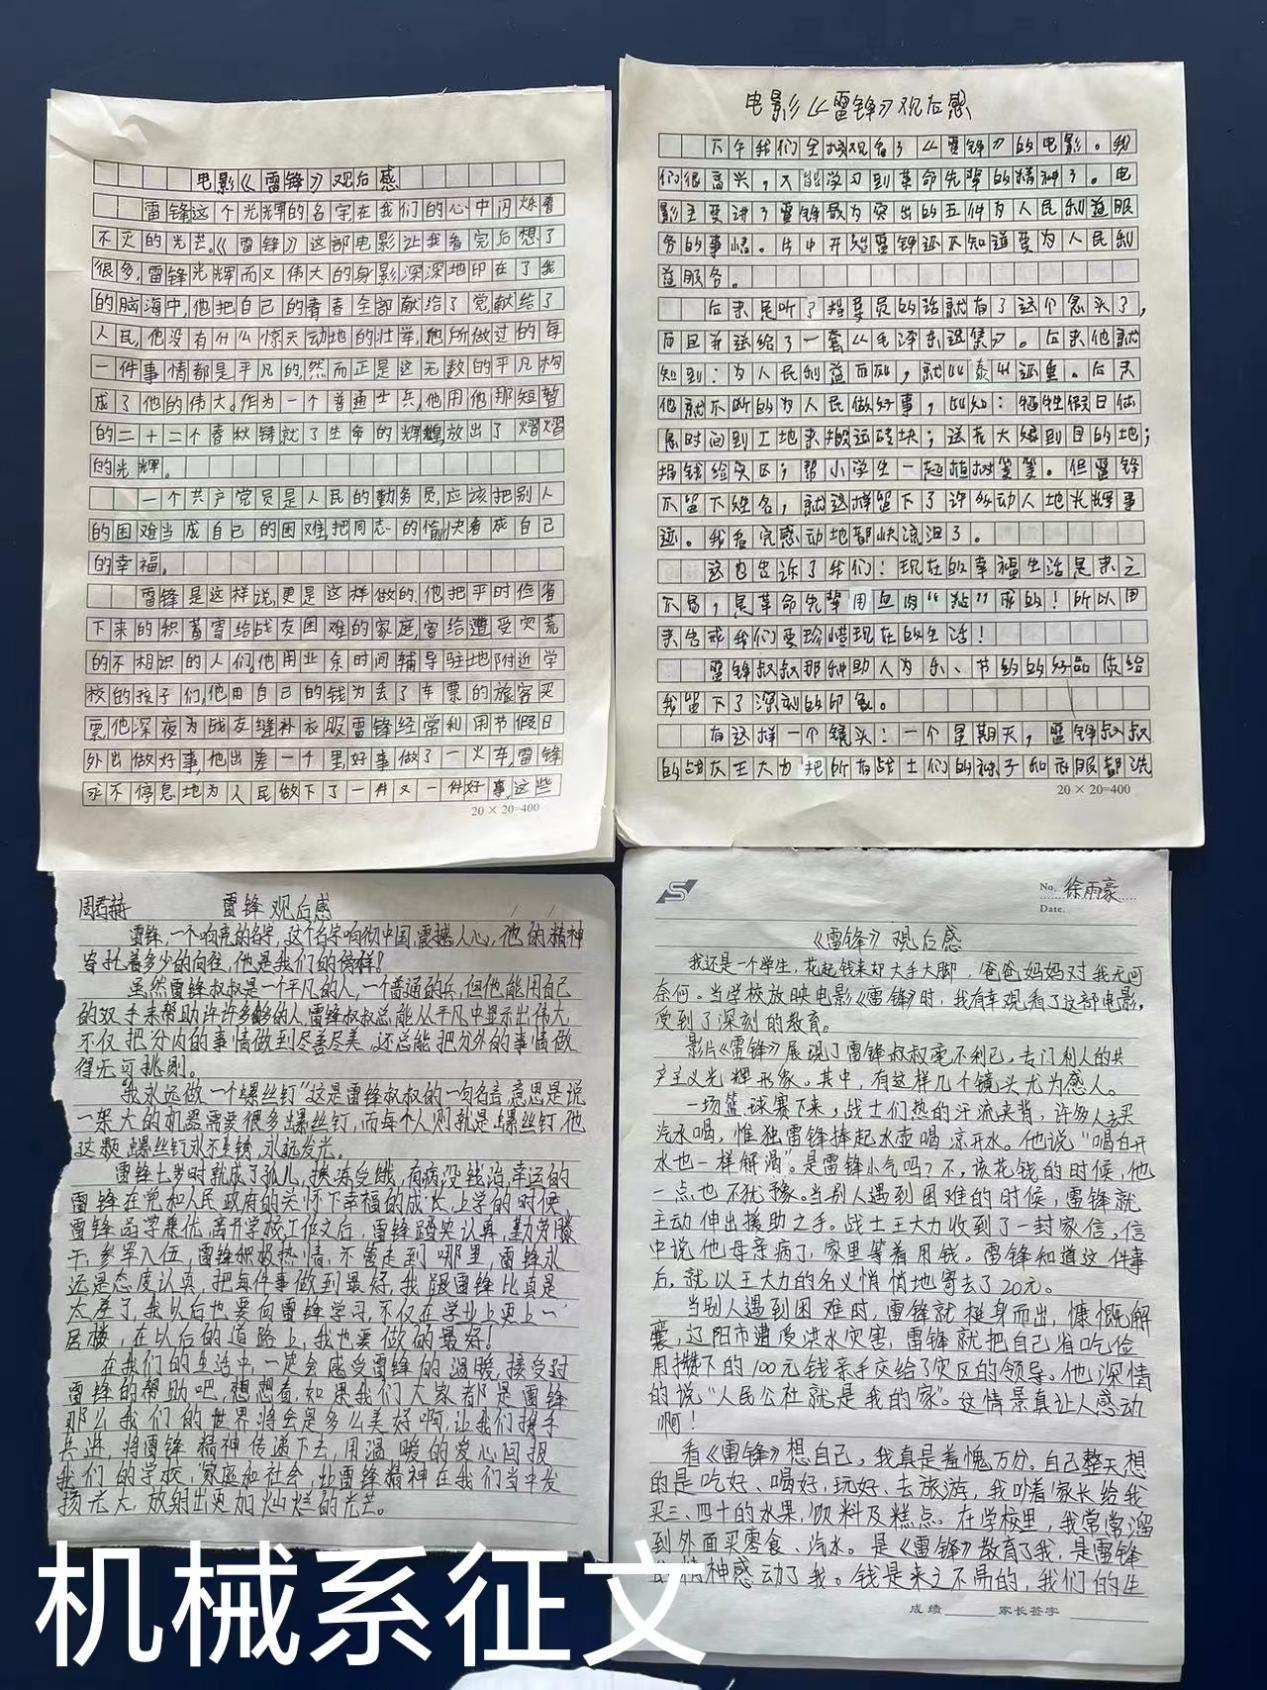 电影《雷锋》观后感
雷锋这个光辉的名字在我们的心中闪烁着
不灭的光芒。《雷锋》这部电影让我看完后想了
很多,雷锋光辉而又伟大的身影深深地印在了我
的脑海中,他把自己的青春全部献给了党,献给了
人民,他没有什么惊天动地的壮举,他所做过的每
一件事情都是平凡的,然而正是这无数的平凡构
成了他的伟大。作为一个普通士兵,他用他那短暂
的二十二个春秋铸就了生命的辉煌,放出了熠熠
的光辉。
一个共产党员是人民的勤务员,应该把别人
的困难当成自己的困难,把同志的愉快看成自己
的幸福。
雷锋是这样说,更是这样做的,他把平时俭省
下来的积蓄寄给战友困难的家庭,寄给遭受灾荒
的不相识的人们,他用业余时间辅导驻地附近学
校的孩子们,他用自己的钱为丢了车票的旅客买
票,他深夜为战友缝补衣服雷锋经常利用节假日
外出做好事,他出差一千里,好事做了一火车,雷锋
永不停息地为人民做下了一件又一件好事,这些
20×20=400
电影《雷锋》观后感
下午我们全校观看了《雷锋》的电影。我
们很高兴,又能学习到革命先辈的精神了。电
影主要讲了雷锋最为突出的五件为人民利益服
务的事情。片中开始雷锋还不知道要为人民利
益服务。
后来是听了指导员的话就有了这个念头了,
而且并送给了一套《毛泽东选集》。后来他就
知到:为人民利益而死,就比泰山还重。后来
他就不断的为人民做好事,比如:牺牲假日休
息时间到工地来搬运砖块;送老大娘到目的地;
捐钱给灾区;帮小学生一起植树等等。但雷锋
不留下姓名,就这样留下了许多动人地光辉事
迹。我看完感动地都快流泪了。
这也告诉了我们:现在的幸福生活是来之
不易,是革命先辈用血肉“粘”成的!所以用
来告戒我们要珍惜现在的生活!
雷锋叔叔那种助人为乐、节约的好品质给
我留下了深刻的印象。
有这样一个镜头:一个星期天,雷锋叔叔
的战友王大力把所有战士们的袜子和衣服都洗
20×20=400
周君赫 雷锋观后感
雷锋,一个响亮的名字,这个名字响彻中国,震撼人心,他的精神
寄托着多少的向往,他是我们的榜样!
虽然雷锋叔叔是一个平凡的人,一个普通的兵,但他能用自己
的双手来帮助许许多多的人,雷锋叔叔总能从平凡中显示出伟大,
不仅把分内的事情做到尽善尽美,还总能把分外的事情做
得无可挑剔。
“我永远做一个螺丝钉”这是雷锋叔叔的一句名言,意思是说
一架大的机器需要很多螺丝钉,而每个人则就是螺丝钉,他
这颗螺丝钉永不生锈,永远发光。
雷锋七岁时就成了孤儿,挨冻受饿,有病没钱治,幸运的
雷锋在党和人民政府的关怀下幸福的成长,上学的时候
雷锋品学兼优,离开学校工作之后,雷锋踏实认真,勤劳肯
干,参军入伍,雷锋积极热情,不管走到哪里,雷锋永
远是态度认真,把每件事做到最好,我跟雷锋比真是
太差了,我以后也要向雷锋学习,不仅在学业上更上一
层楼,在以后的道路上,我也要做的最好!
在我们的生活中,一定会感受雷锋的温暖,接受过
雷锋的帮助吧,想想看,如果我们大家都是雷锋
那么我们的世界将会是多么美好啊,让我们携手
共进,将雷锋精神传递下去,用温暖的爱心回报
我们的学校,家庭和社会,让雷锋精神在我们当中发
扬光大,放射出更加灿烂的光芒。
No. 徐雨豪
Date.
《雷锋》观后感
我还是一个学生,花起钱来却大手大脚,爸爸妈妈对我无可
奈何。当学校放映电影《雷锋》时,我有幸观看了这部电影,
受到了深刻的教育。
影片《雷锋》展现了雷锋叔叔毫不利己,专门利人的共
产主义光辉形象。其中,有这样几个镜头尤为感人。
一场篮球赛下来,战士们热的汗流夹背,许多人去买
汽水喝,惟独雷锋捧起水壶喝凉开水。他说“喝白开
水也一样解渴”。是雷锋小气吗?不,该花钱的时候,他
一点也不犹豫。当别人遇到困难的时候,雷锋就
主动伸出援助之手。战士王大力收到了一封家信,信
中说他母亲病了,家里等着用钱。雷锋知道这件事
后,就以王大力的名义悄悄地寄去了20元。
当别人遇到困难时,雷锋就挺身而出,慷慨解
囊,辽阳市遭受洪水灾害,雷锋就把自己省吃俭
用攒下的100元钱亲手交给了灾区的领导。他深情
的说“人民公社就是我的家”。这情景真让人感动
啊!
看《雷锋》想自己,我真是羞愧万分,自己整天想
的是吃好、喝好,玩好、去旅游,我吵着家长给我
买三、四十的水果,饮料及糕点。在学校里,我常常溜
到外面买零食、汽水。是《雷锋》教育了我,是雷锋
精神感动了我。钱是来之不易的,我们的生
成绩 家长签字
机械系征文